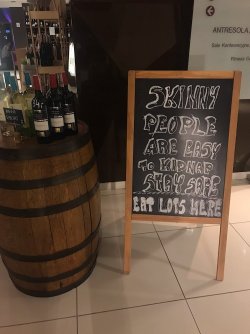 ANTRESOLA
SKINNY
PEOPLE
ARE EASY
TO KIDNAP
STAY SAFE
EAT LOTS HERE